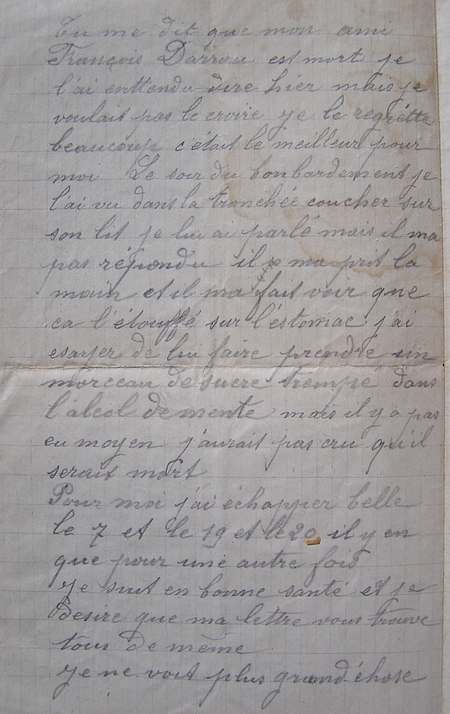 Tu me dit que mon ami
François Darrou est mort je
l'ai enttendu dire hier mais je
voulait pas le croire je le regrette
beaucoup c'était le meilleur pour
moi Le soir du bombardement je
l'ai vu dans la tranchée coucher sur
son lit je lui ai parlé mais il ma
pas répondu il ma prit la
main et il ma fait voir que
ca l'étouffé sur l'estomac j'ai
esayer de lui faire prendre un
morceau de sucre trempé dans
l'alcol de mente mais il y a pas
eu moyen j'aurait pas cru qu'il
serait mort
Pour moi j'ai échapper belle
le 7 et le 19 et le 20 il y en
que pour une autre fois
Je suit en bonne santé et je
désire que ma lettre vous trouve
tous de même
Je ne voit plus grand chose